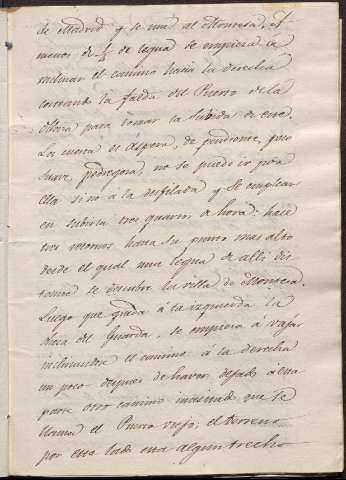 de Madrid y se une al Monesa, á
menos de 1/4 de legua se empieza á
inclinar el camino hacia la derecha
cortando la falda del Puerto de la
Mora para tomar la subida de este.
La cuesta es áspera, de pendiente, poco
suave, pedregosa, no se puede ir por
ella sino á la desfilada y se emplean
en subirla tres quartos de hora: hace
tres recursos hasta su punto mas alto
desde el qual una legua de alli dis-
tante se descubre la villa de
Luego que queda á la izquierda la
del Guarda, se empieza á vajar
inclinandose el camino á la derecha
un poco despues de haver dejado á esta
parte otro camino que se
llama el Puerto viejo; el terreno
por este lado esta algun trecho